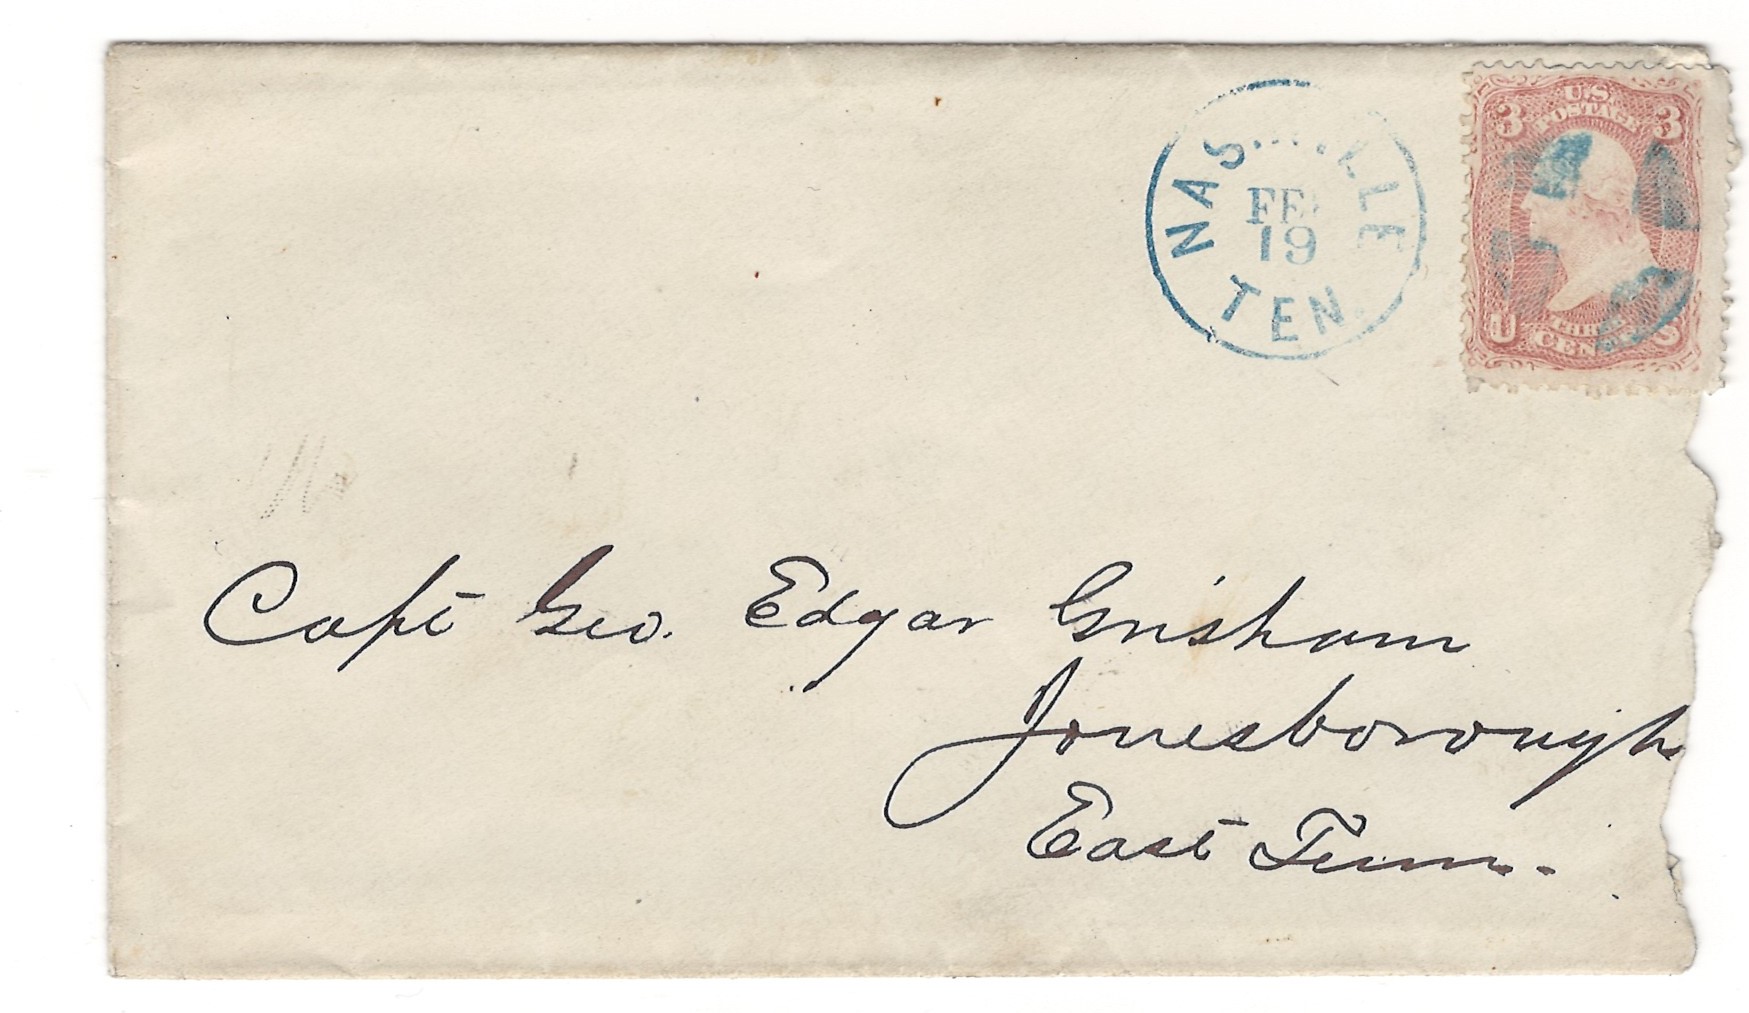 NASHVILLE
FEB
19
TEN.
U.S.
POSTAGE
3 3
THREE
CENTS
U S
Capt Geo. Edgar Grisham
Jonesborough
East Tenn.